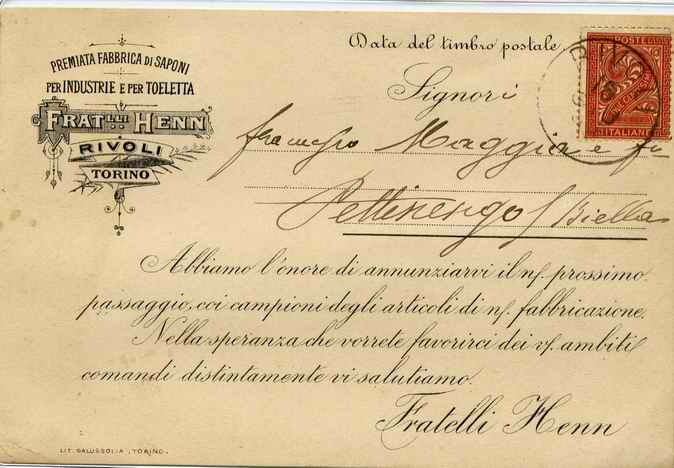 PREMIATA FABBRICA DI SAPONI
PER INDUSTRIE E PER TOELETTA
FRATLLI HENN
RIVOLI
TORINO
Data del timbro postale
POSTE
ITALIANE
Signori
Francesco Maggia e fi
Pettinengo / Biella
Abbiamo l'onore di annunziarvi il nſ. prossimo
passaggio, coi campioni degli articoli di nſ. fabbricazione.
Nella speranza che vorrete favorirci dei vſ. ambiti
comandi distintamente vi salutiamo.
Fratelli Henn
LIT. SALUSSOLIA, TORINO.